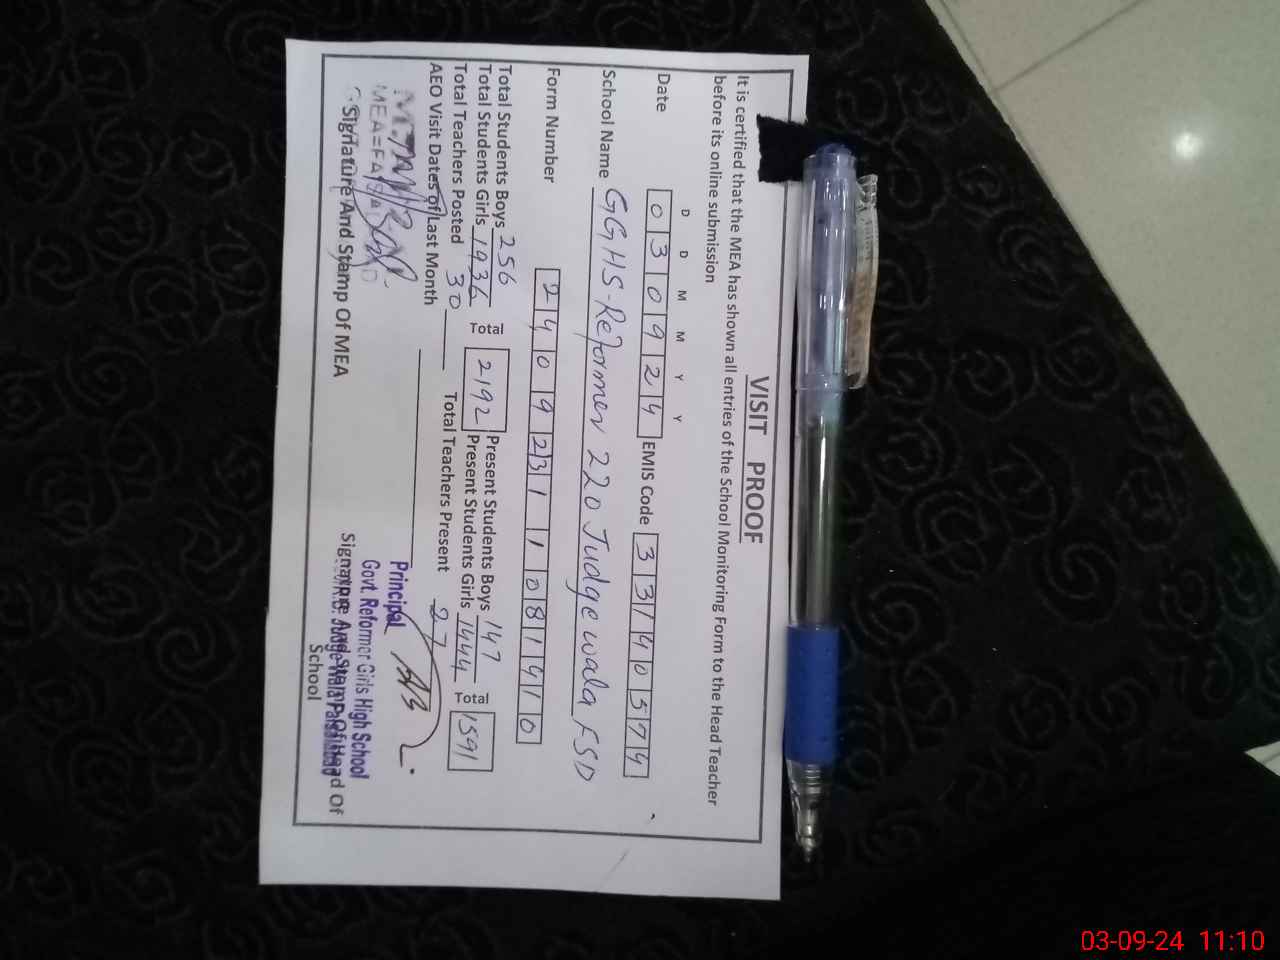 VISIT PROOF
It is certified that the MEA has shown all entries of the School Monitoring Form to the Head Teacher
before its online submission
D D M M Y Y
Date 030924 EMIS Code 33140574
School Name GGHS-Reformer 220 Judgewala FSD
Form Number 24092311081410
Total Students Boys 256 Present Students Boys 147
Total Students Girls 1936 Total 2192 Present Students Girls 1444 Total 1591
Total Teachers Posted 30 Total Teachers Present 27
AEO Visit Dates of Last Month
Principal
Govt. Reformer Girls High School
Signature And Stamp Of MEA
Signature And Stamp Of Head Of
School
03-09-24 11:10